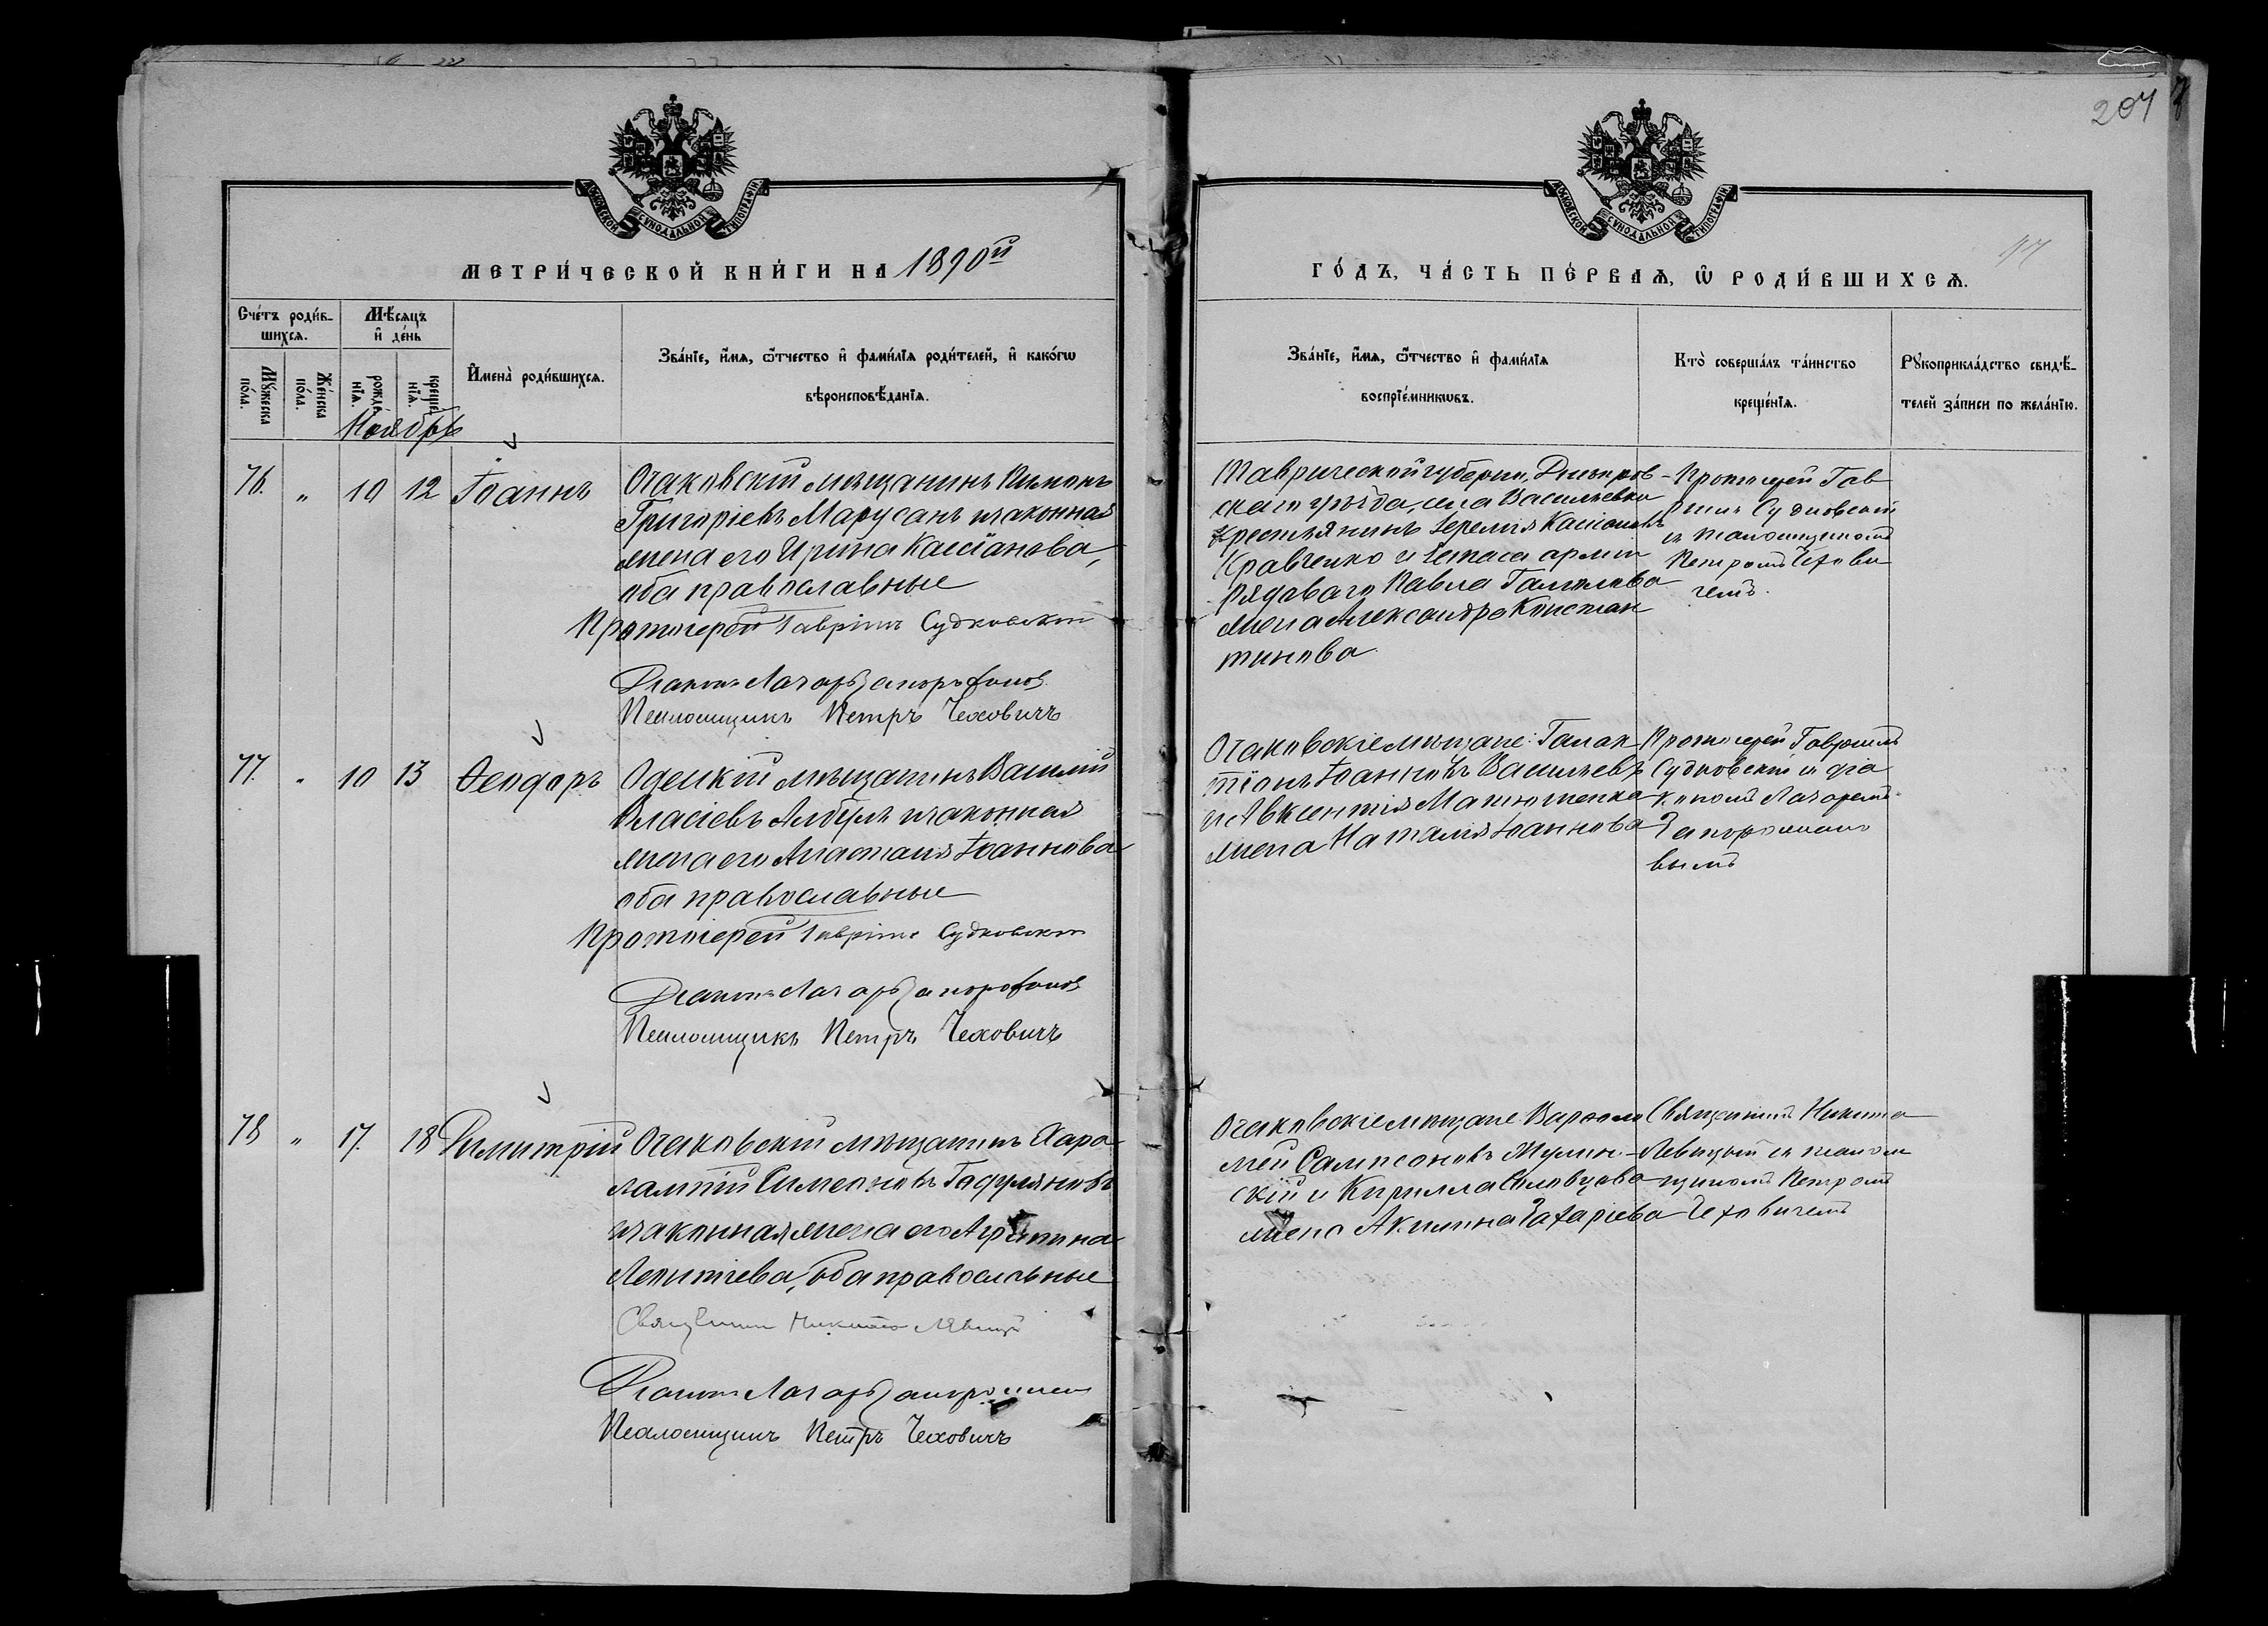 207
МОСКОВСКОЙ СѴНОДАЛЬНОЙ ТИПОГРАФІИ.
МОСКОВСКОЙ СѴНОДАЛЬНОЙ ТИПОГРАФІИ.
МЕТРИ́ЧЕСКОЙ КНИ́ГИ НА 1890й
ГО́ДЪ, ЧА́СТЬ ПЕ́РВАѦ, Ѿ РОДИ́ВШИХСѦ.
Сче́тъ роди́в-
шихсѧ.
Мꙋ́жеска
по́ла.
Же́нска
по́ла.
Мѣ́сѧцъ
и҆ де́нь
рожде́-
нїѧ.
креще́-
нїѧ.
Ноябрь
И҆мена̀ роди́вшихсѧ.
Зва́нїе, и҆́мѧ, ѻ҆́тчество и҆ фами́лїѧ роди́телей, и҆ како́гѡ
вѣроисповѣ́данїѧ.
Зва́нїе, и҆́мѧ, ѻ҆́тчество и҆ фами́лїѧ
воспрїе́мникѡвъ.
Кто̀ соверша́лъ та́инство
креще́нїѧ.
Рꙋкоприкла́дство свидѣ́-
телей за́писи по жела́нїю.
76. " 10 12 Іоаннъ
Очаковскій мѣщанинъ Пимонъ
Григоріевъ Марусанъ и законная
жена его Ирина Кассіанова,
оба православные
Протоіерей Гавріилъ Судковскій
Діаконъ Лазарь Запорожановъ
Псаломщикъ Петръ Чеховичъ
Таврической губерніи, Днѣпров-
скаго уѣзда, села Васильевки
крестьянинъ Іеремія Кассіановъ
Кравченко и
рядоваго Павла
жена Александра Констан
тинова.
Протоіерей Гав
ріилъ Судковскій
съ псаломщикомъ
Петромъ Чехови
чемъ.
77. " 10 13 Ѳеодоръ
Одескій мѣщанинъ Василій
Власіевъ Албулъ и законная
жена его Анастасія Іоаннова
оба православные
Протоіерей Гавріилъ Судковскій
Діаконъ Лазарь Запорожановъ
Псаломщикъ Петръ Чеховичъ
Очаковскіе мѣщане: Галак
тіонъ Іоанновъ Васильевъ
и Авксентія Матюшенка
жена Наталія Іоаннова
Протоіерей Гавріилъ
Судковскій съ діа
кономъ Лазаремъ
Запорожано
вымъ
78 " 17. 18 Димитрій
Очаковскій мѣщанинъ Хара
лампій Симеоновъ Гадуляновъ
и законная жена его Агрипина
Леонтіева, оба православные
Священникъ Никита Левицкій
Діаконъ Лазарь Запорожановъ
Псаломщикъ Петръ Чеховичъ
Очаковскіе мѣщане Варѳоло
мей Сампсоновъ Жулин-
скій и Кирилла Словцова
жена Акилина Захаріева
Священникъ Никита
Левицкій съ псалом
щикомъ Петромъ
Чеховичемъ